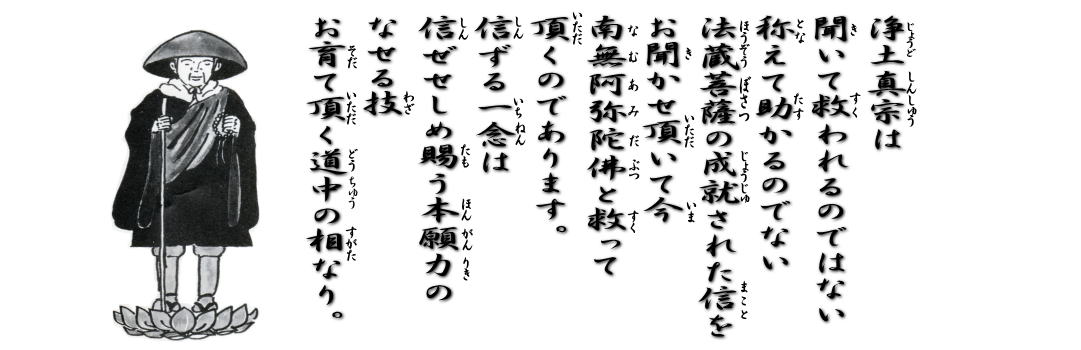 浄土真宗は
聞いて救われるのではない
称えて助かるのでない
法蔵菩薩の成就された信を
お聞かせ頂いて今
南無阿弥陀佛と救って
頂くのであります。
信ずる一念は
信ぜせしめ賜う本願力の
なせる技
お育て頂く道中の相なり。